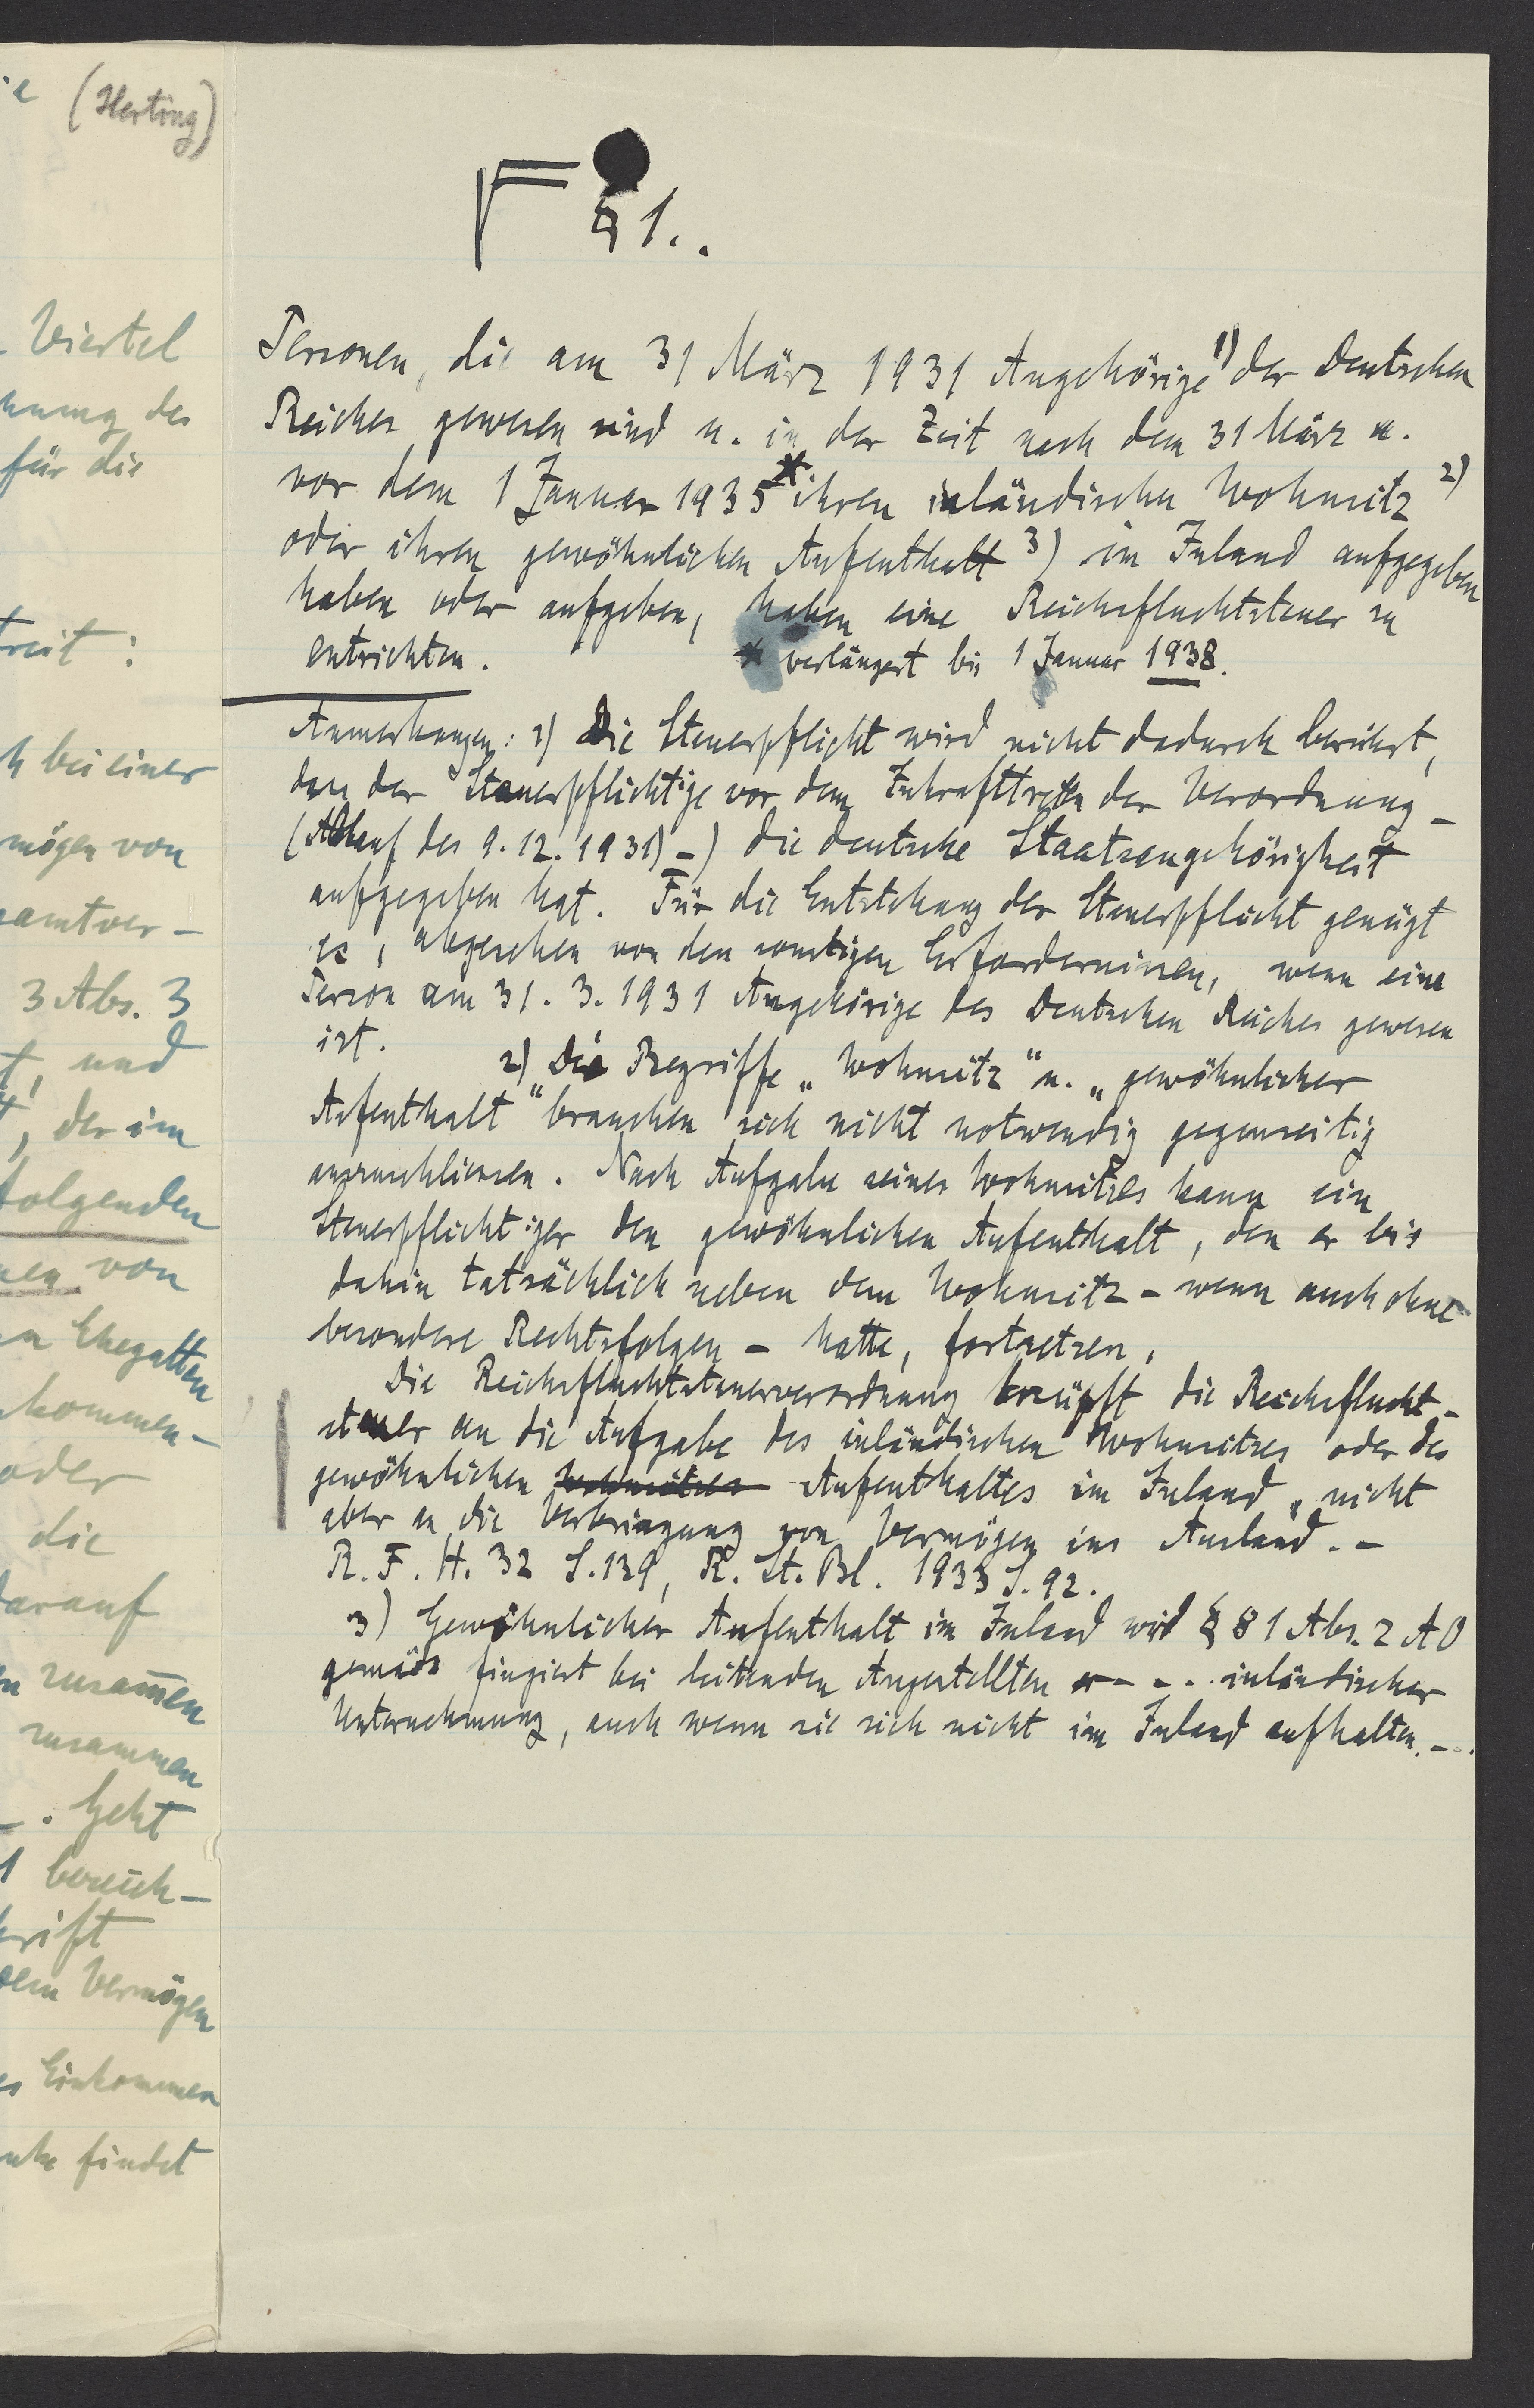 (Herting)
Viertel
nung des
für die
treit :
h bei einer
mögen von
samtver-
3 Abs. 3
t, und
, der im
folgenden
nen von
Ehegatten
kommen-
oder
die
darauf
zusammen
zusammen
. Geht
1 bereich-
rift
dem Vermögen
es Einkommen
findet
§ 1..
Personen, die am 31 März 1931 Angehörige 1) des Deutschen
Reiches gewesen sind u. in der Zeit nach dem 31 März u.
vor dem 1 Januar 1935 * ihren inländischen Wohnsitz 2)
oder ihren gewöhnlichen Aufenthalt 3) im Inland aufgegeben
haben oder aufgeben, haben eine Reichsfluchtsteuer zu
entrichten.
* verlängert bis 1 Januar 1938.
Anmerkungen: 1) Die Steuerpflicht wird nicht dadurch berührt,
dass der Steuerpflichtige vor dem Inkrafttreten der Verordnung -
(Ablauf des 9.12.1931) -) die deutsche Staatsangehörigkeit
aufgegeben hat. Für die Entstehung der Steuerpflicht genügt
es, abgesehen von den sonstigen Erfordernissen, wenn eine
Person am 31. 3. 1931 Angehörige des Deutschen Reiches gewesen
ist.
2) Die Begriffe „Wohnsitz" u. „gewöhnlicher
Aufenthalt" brauchen sich nicht notwendig gegenseitig
auszuschliessen. Nach Aufgabe seines Wohnsitzes kann ein
Steuerpflichtiger den gewöhnlichen Aufenthalt, den er bis
dahin tatsächlich neben dem Wohnsitz - wenn auch ohne
besondere Rechtsfolgen - hatte, fortsetzen.
Die Reichsfluchtsteuerverordnung knüpft die Reichsflucht-
steuer an die Aufgabe des inländischen Wohnsitzes oder des
gewöhnlichen Wohnsitzes Aufenthaltes im Inland, nicht
aber an die Verbringung von Vermögen ins Ausland. -
R. F. H. 32 S. 129, R. St. Bl. 1933 S. 92.
3) Gewöhnlicher Aufenthalt im Inland wird § 81 Abs. 2 AO
gemäss fingiert bei leitenden Angestellten - - . . inländischer
Unternehmung, auch wenn sie sich nicht im Inland aufhalten. - .